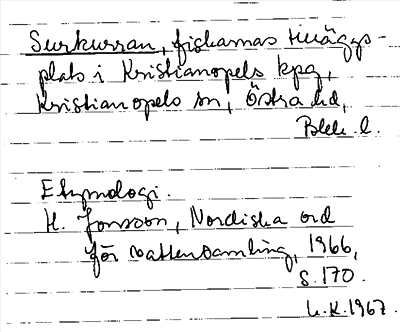 Surkurran, fiskarnas tilläggs-
plats i Kristianopels kpg,
Kristianopels sn, Östra hd,
Blek. l.
Etymologi.
H. Jonsson, Nordiska ord
för vattensamling, 1966,
s. 170.
L.K. 1967.